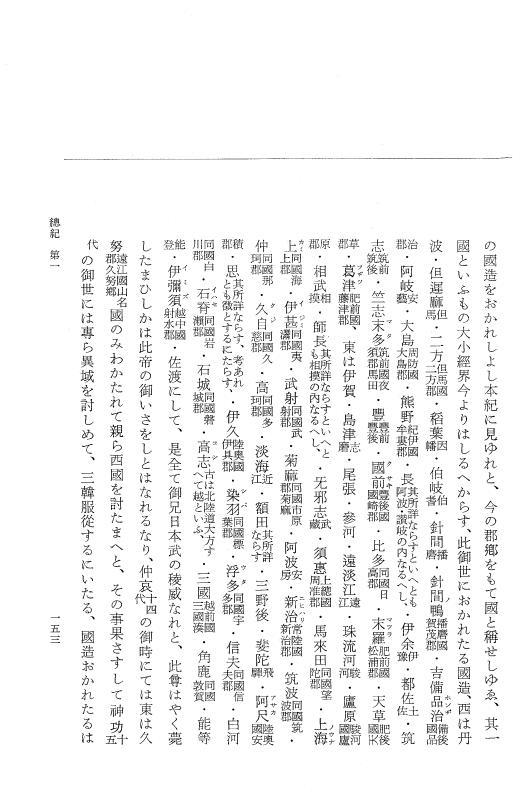 の國造をおかれしよし本紀に見ゆれと、今の郡鄕をもて國と稱せしゆゑ、其一
國といふもの大小經界今よりはしるへからす、此御世におかれたる國造、西は丹
波・但遲麻但馬・二方但馬國二方郡・稻葉因幡・伯岐伯耆・針間播磨・針間鴨播磨國賀茂郡・吉備品治ホンヂ備後國品
治郡・阿岐安藝・大島周防國大島郡・熊野紀伊國牟婁郡・長其所詳ならすといへとも阿波・讃岐の内なるへし、・伊余伊豫・都佐土佐・筑
志筑前筑後・竺志末多マタ筑前國夜須郡馬田・豐豐前豐後・國前クサキ豐後國國崎郡・比多同國日高郡・末羅マツラ肥前國松浦郡・天草肥後國天
草郡・葛津フヂツ肥前國藤津郡、東は伊賀・島津志摩・尾張・參河・遠淡江遠江・珠流河駿河・廬原駿河國廬
原郡・相武相摸・師長其所詳ならすといへとも相摸の内なるへし、・牙邪志武藏・須惠上總國周准郡・馬來田同國望陀郡・上海ノウナ
上カミ同國海上郡・伊甚イジミ同國夷灊郡・武射同國武射郡・菊麻同國市原郡菊麻・阿波安房・新治ニヒハリ常陸國新治郡・筑波同國筑波郡・
仲同國那珂郡・久自クジ同國久慈郡・高同國多珂郡・淡海近江・額田其所詳ならす・三野後・斐陀飛驒・阿尺アサカ陸奥國安
積郡・思其所詳ならす、考あれとも徵とするにたらす、・伊久陸奥國伊具郡・染羽シバ同國標葉郡・浮多ウタ同國宇多郡・信夫同國信夫郡・白河
同國白川郡・石脊イハセ同國岩瀬郡・石城同國磐城郡・高志コシ古は北陸道大方すへて越といふ、・三國越前國三國湊・角鹿同國敦賀・能等
能登・伊彌須イミズ越中國射水郡・佐渡にして、是全て御兄日本武の稜威なれと、此尊はやく薨
したまひしかは此帝の御いさをしとはなれるなり、仲哀十四代の御時にては東は久
努遠江國山名郡久努鄕國のみわかたれて親ら西國を討たまへと、その事果さすして神功十五
代の御世には專ら異域を討しめて、三韓服從するにいたる、國造おかれたるは
總紀 第一
一五三